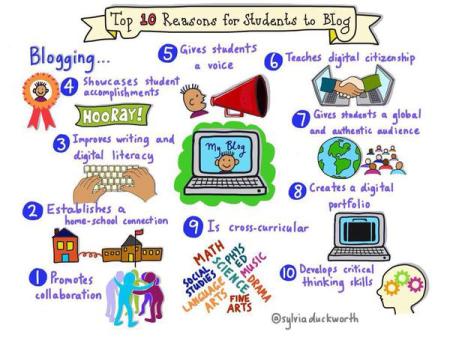 Top 10 Reasons for Students to Blog
Blogging...
1 Promotes
collaboration
2 Establishes a
home-school connection
3 Improves writing and
digital literacy
4 Showcases student
accomplishments
HOORAY!
5 Gives students
a voice
6 Teaches digital citizenship
7 Gives students a global
and authentic audience
8 Creates a digital
portfolio
9 Is cross-curricular
MATH
SOCIAL
STUDIES
LANGUAGE
ARTS
PHYS
ED
SCIENCE
MUSIC
DRAMA
FINE
ARTS
10 Develops critical
thinking skills
My Blog
@sylviaduckworth